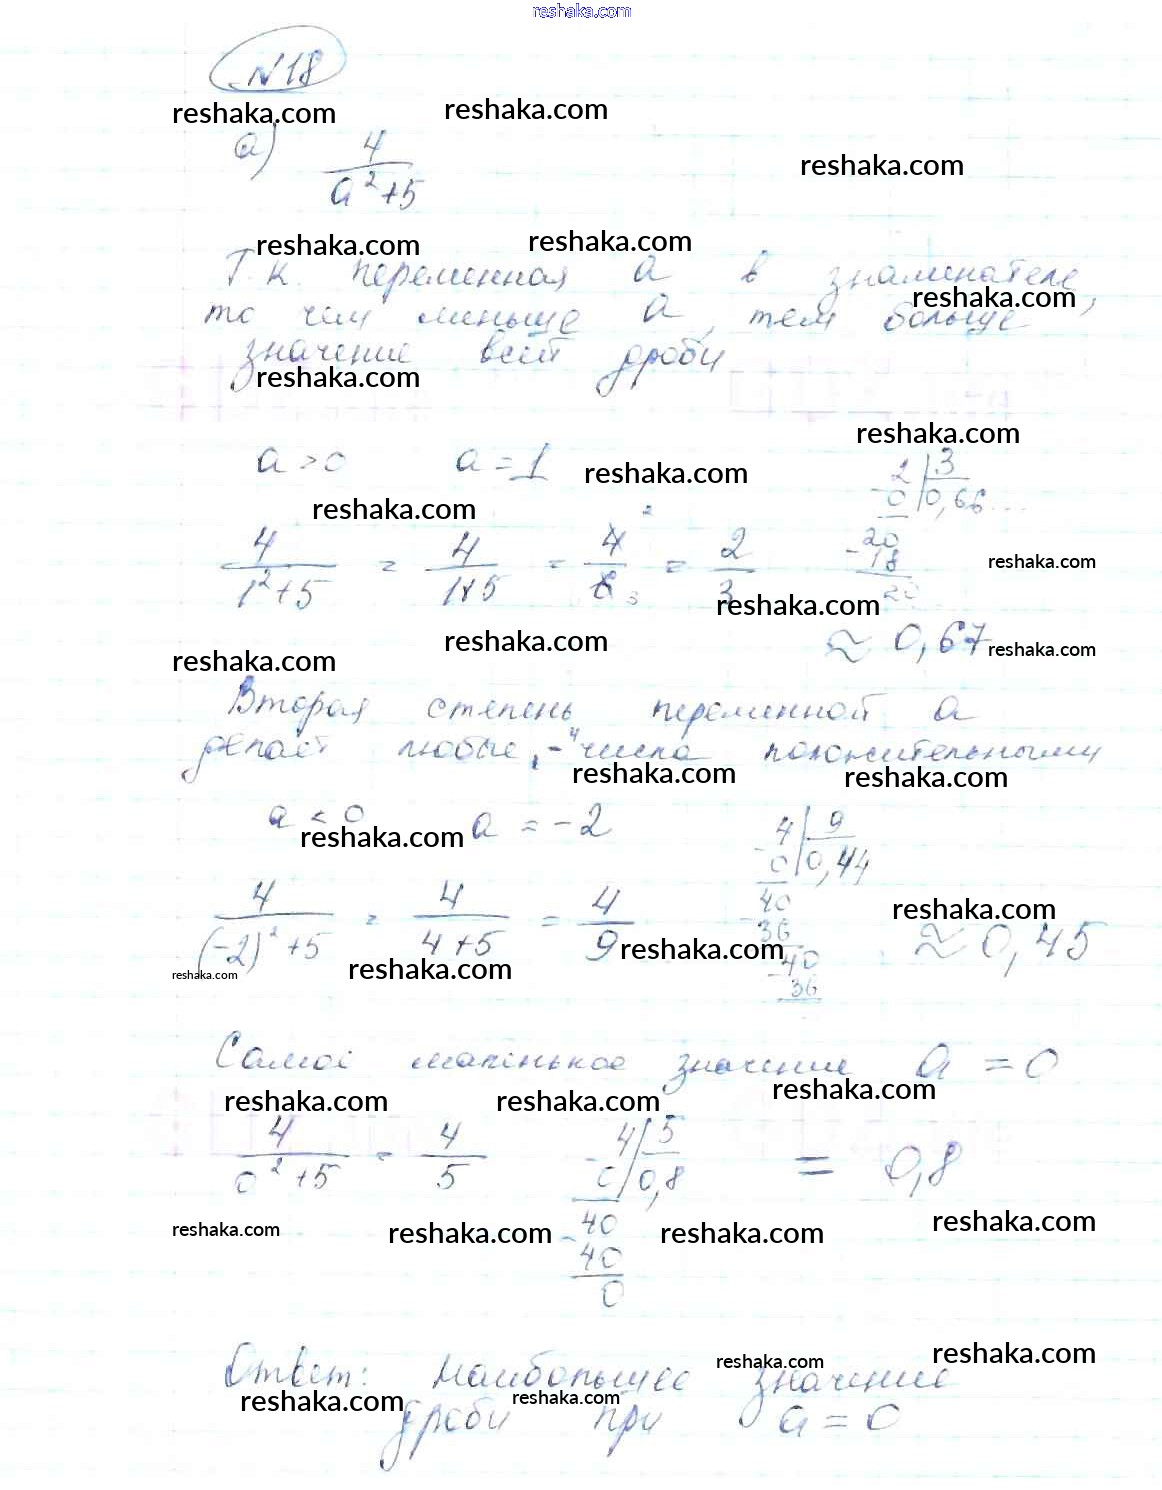 reshaka.com
№18
reshaka.com reshaka.com
а) 4/(a²+5)
reshaka.com
reshaka.com reshaka.com
Т.к. переменная а в знаминателе,
reshaka.com
то чем меньше а, тем больше
значение всей дроби
reshaka.com
reshaka.com
a > 0 a = 1
reshaka.com
2 | 3
0 | 0,66...
reshaka.com
4/(1²+5) = 4/(1+5) = 4/6 = 2/3
20
- 18
20
reshaka.com
reshaka.com
≈ 0,67
reshaka.com
reshaka.com
reshaka.com
Вторая степень переменной а
делает любые числа положительными
reshaka.com reshaka.com
a < 0 a = -2
reshaka.com
4 | 9
0 | 0,44
40
36
40
- 36
4/((-2)²+5) = 4/(4+5) = 4/9 ≈ 0,45
reshaka.com
reshaka.com
reshaka.com reshaka.com
Самое маленькое значение a = 0
reshaka.com reshaka.com reshaka.com
4/(0²+5) = 4/5
- 4 | 5
0 | 0,8
= 0,8
- 40
40
0
reshaka.com reshaka.com reshaka.com reshaka.com
Ответ: Наибольшее значение
reshaka.com reshaka.com
reshaka.com reshaka.com
дроби при a = 0